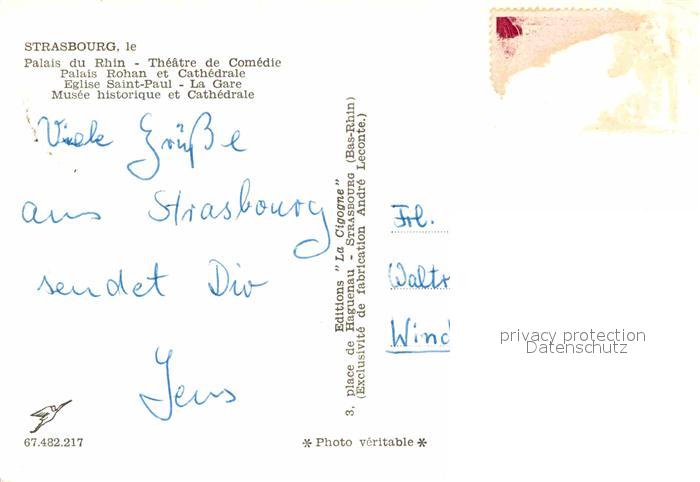 STRASBOURG, le
Palais du Rhin - Théâtre de Comédie
Palais Rohan et Cathédrale
Eglise Saint-Paul - La Gare
Musée historique et Cathédrale
Viele Grüße
aus Strasbourg
sendet Dir
Jens
67.482.217
Editions "La Cigogne"
3, place de Haguenau - STRASBOURG (Bas-Rhin)
(Exclusivité de fabrication André Leconte.)
* Photo véritable *
Frl.
Waltr
Wind
privacy protection
Datenschutz